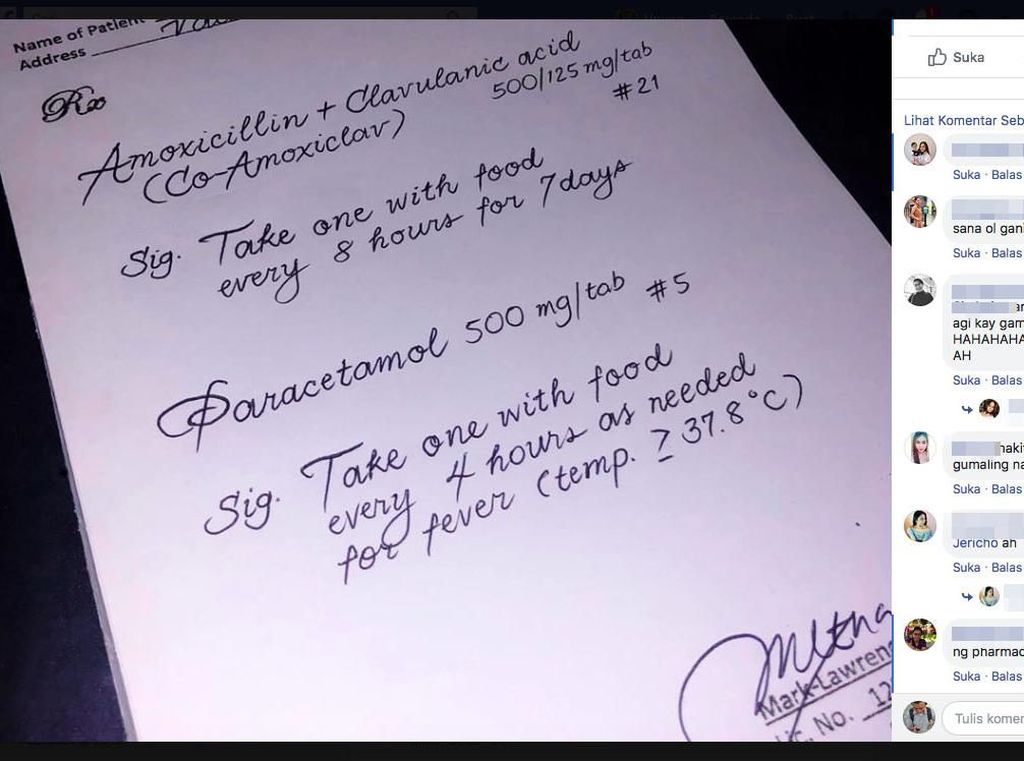 Name of Patient
Address
Rx
Amoxicillin + Clavulanic acid
500/125 mg/tab
(Co-Amoxiclav)
#21
Sig. Take one with food
every 8 hours for 7 days
Paracetamol 500 mg/tab #5
Sig. Take one with food
every 4 hours as needed
for fever (temp. ≥ 37.8°C)
Mark-Lawren
Lic. No. 12
Suka
Lihat Komentar Seb
Suka · Balas
sana ol gan
Suka · Balas
agi kay gam
HAHAHAHA
AH
Suka · Balas
gumaling na
Suka · Balas
Jericho ah
Suka · Balas
ng pharmac
Suka · Balas
Tulis komen